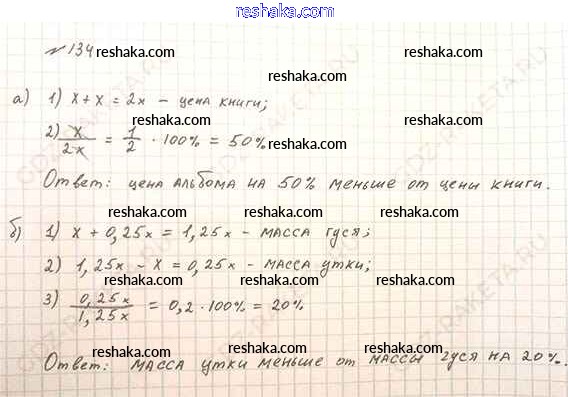 reshaka.com
№134 reshaka.com
reshaka.com reshaka.com
а) 1) x + x = 2x – цена книги;
reshaka.com
2) x/2x = 1/2 · 100% = 50%
reshaka.com
Ответ: цена альбома на 50% меньше от цены книги.
reshaka.com reshaka.com
б) 1) x + 0,25x = 1,25x – масса гуся;
reshaka.com reshaka.com
2) 1,25x – x = 0,25x – масса утки;
reshaka.com reshaka.com
3) 0,25x/1,25x = 0,2 · 100% = 20%
reshaka.com reshaka.com
reshaka.com reshaka.com
Ответ: масса утки меньше от массы гуся на 20%.
GDZ-RAKETA.RU